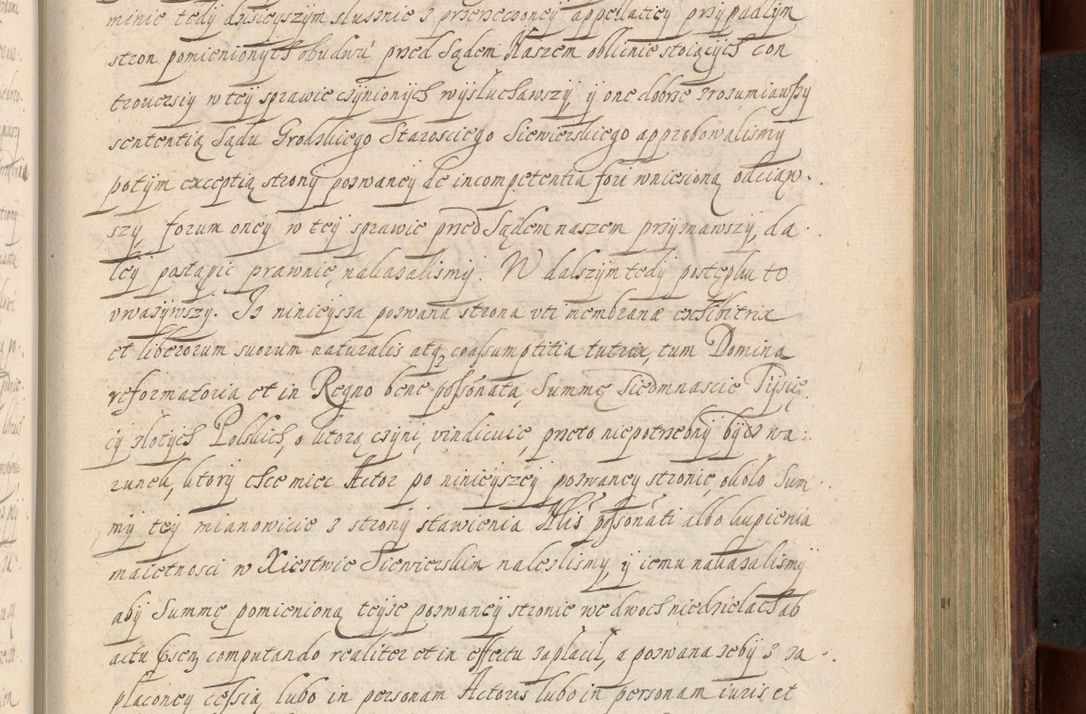 minie tedy dzisieyszym słusznie z przerzeczoney appellatiey przypadłym
stron pomienionych obudwu przed Sądem Naszem oblicznie stoiących con
trouersiy w tey sprawie czynionych wysłuchawszy, y one dobrze zrozumiawszy
sententią Sądu Grodzkiego Starosciego Siewierskiego approbowalismy
potym exceptią strony pozwaney de incompetentia fori wniesioną odciąw
szy, forum oney w tey sprawie przed Sądem naszem przyznawszy, da
ley postąpic prawnie nakazalismy. W dalszym tedy postępku to
vwazywszy. Iz ninieysza pozwana strona vti membranæ exhibitrix
et liberorum suorum naturalis atq coassumptitia tutrix, tum Domina
reformatoria et in Regno bene possonata, Summę Siedmnascie Tysię
cy złotych Polskich, o ktorą czyni, vindicuie, przeto niepotrzebny bydz wa
runek, ktory chce miec Actor po ninieyszey pozwaney stronie, około Sum
my tey mianowicie z strony stawienia possonati albo kupienia
maietnosci w Xiestwie Siewierskim nalezlismy, y iemu nakazalismy
aby Summę pomienioną teyze pozwaney stronie we dwoch niedzielach ab
actu computando realiter et in effectu zapłacił, a pozwana zeby z za
płaconey cessią lubo in personam Actoris lubo in personam iuris et